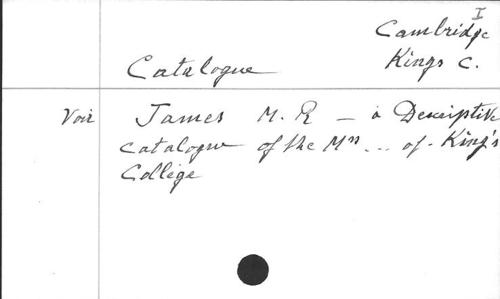 I
Cambridge
Kings C.
Catalogue
Voir James M. R — a Descriptive
Catalogue of the Mss ... of King's
College